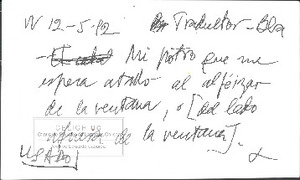 W 12-5-92 Traductor - Bla
- Mi potro que me
espera atado al alféizar
de la ventana, o [del lado
de la ventana].
USADO